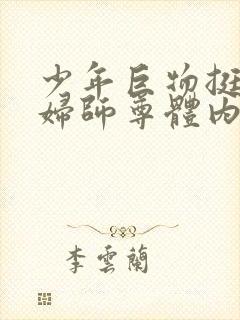 少年巨物挺
婦師尊體內
李雲蘭